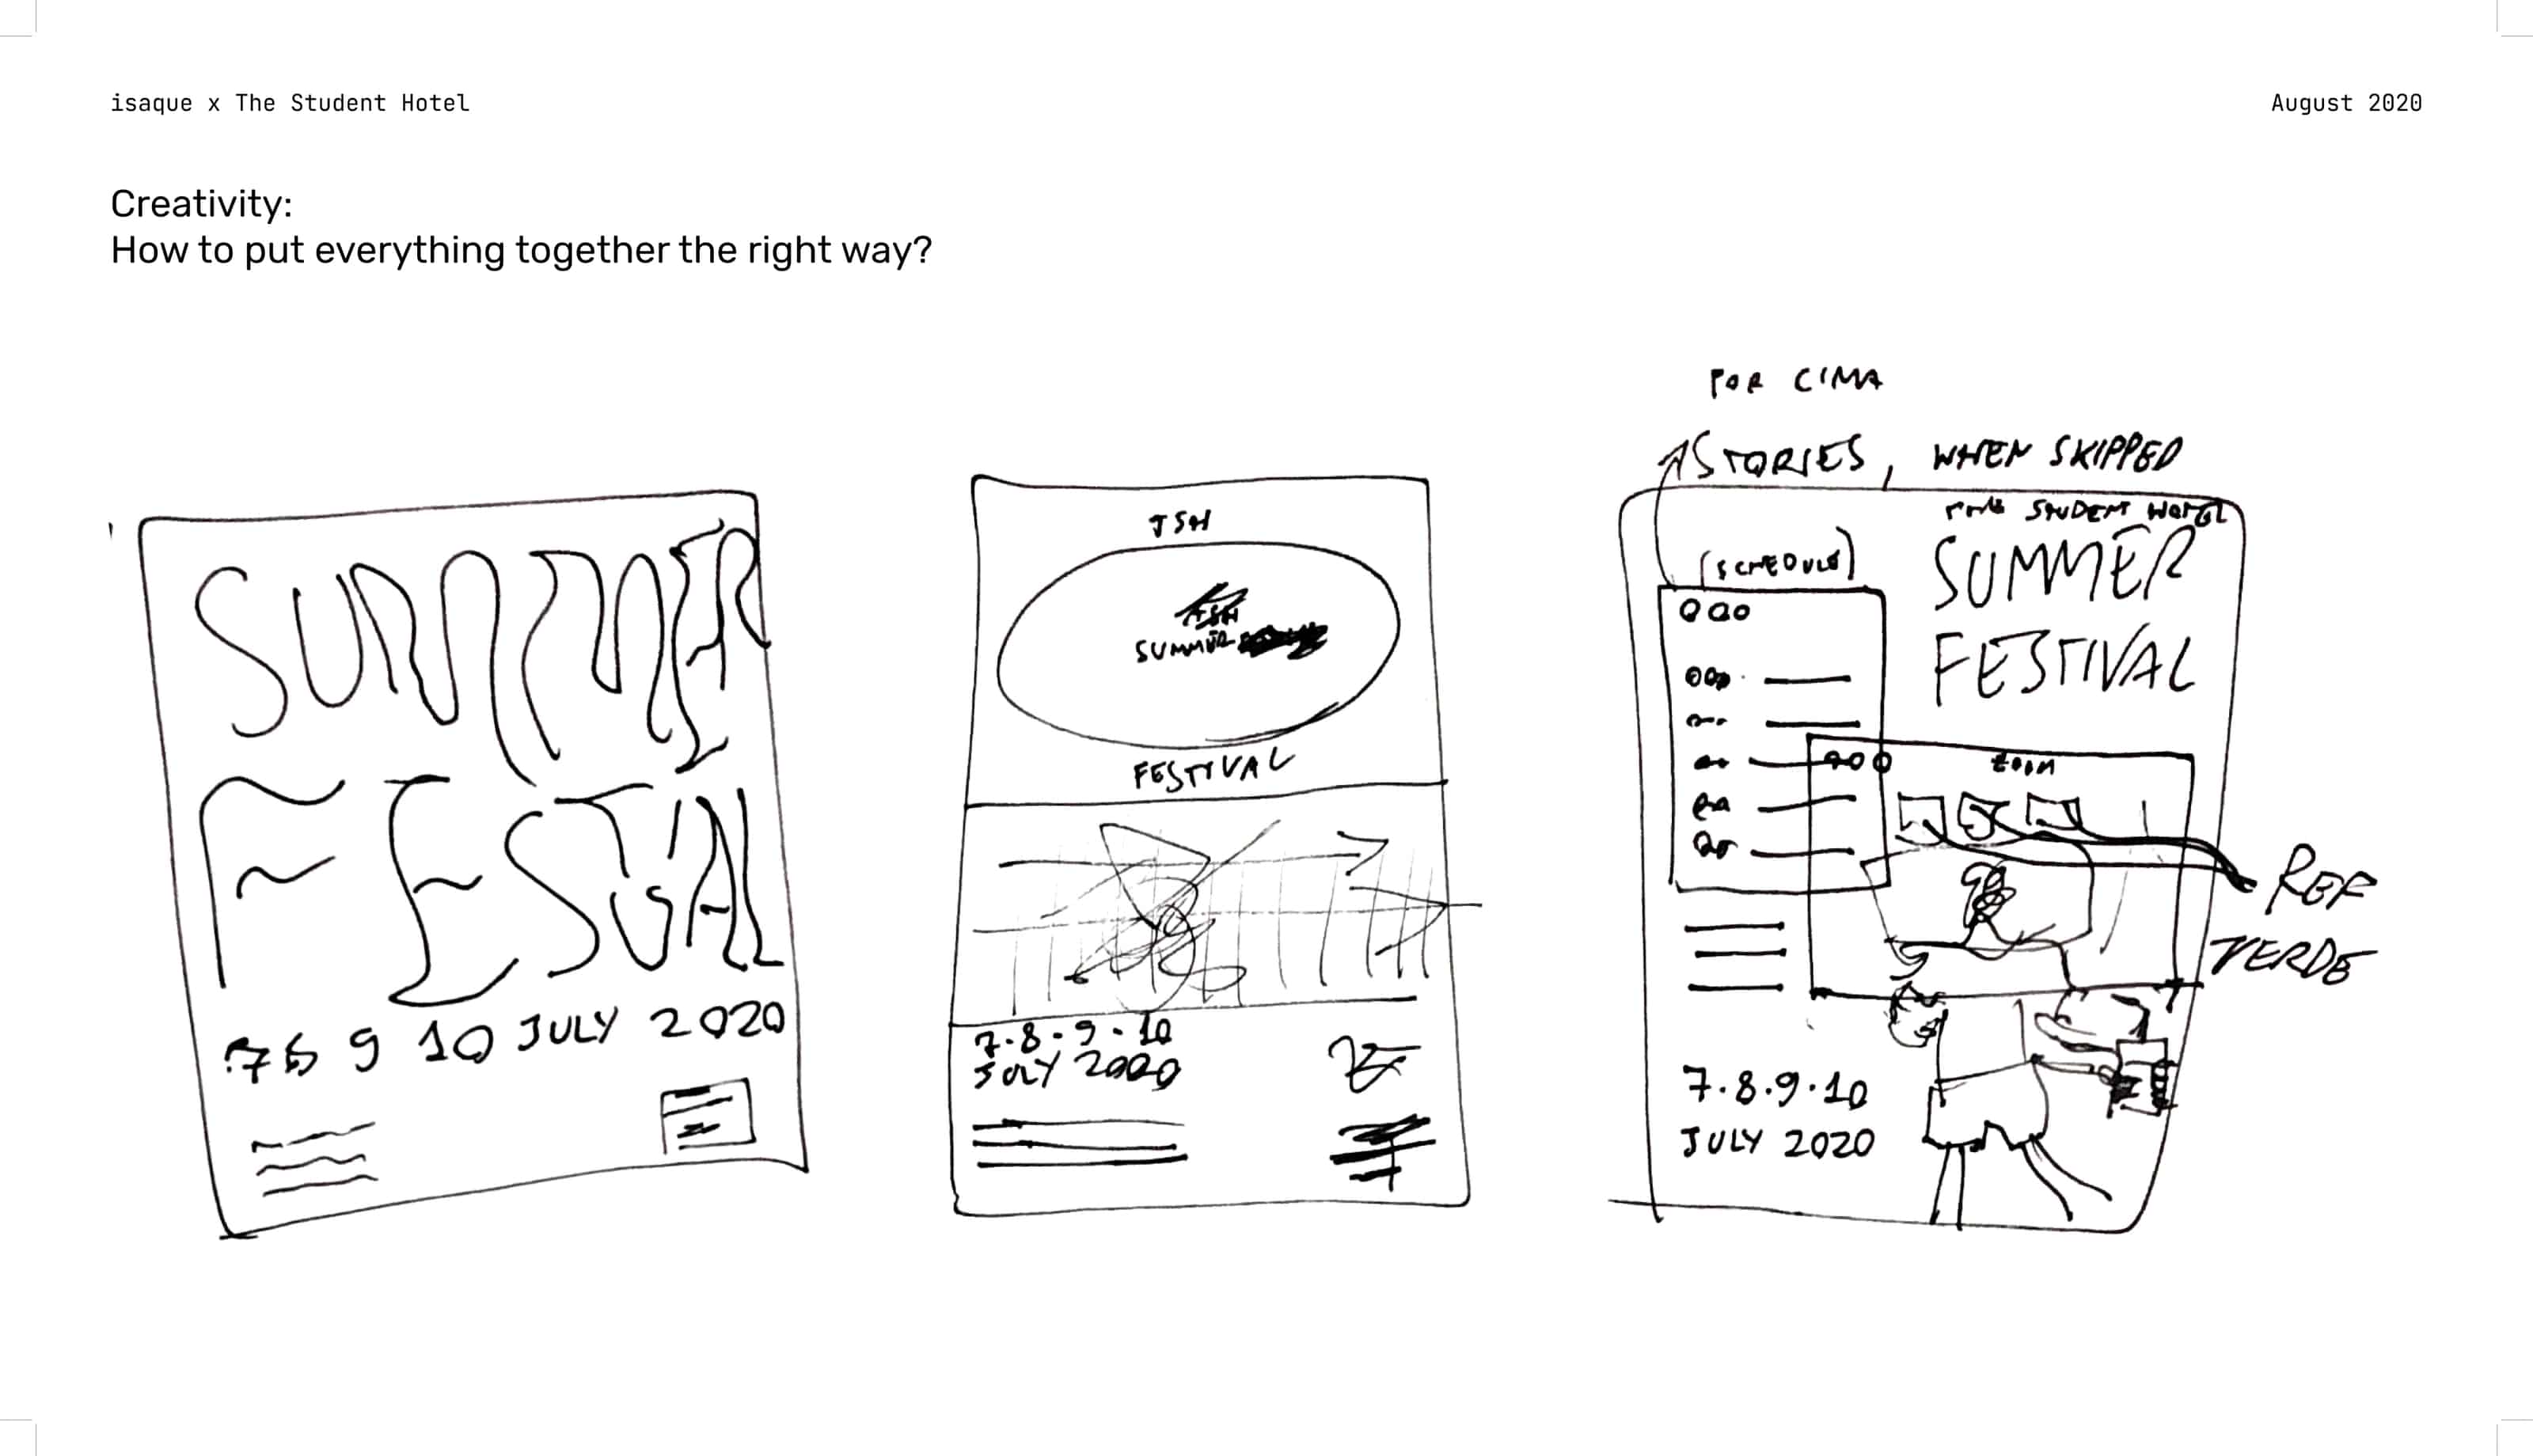 isaque x The Student Hotel
August 2020
Creativity:
How to put everything together the right way?
SUMMER
FESTVAL
9 10 JULY 2020
TSH
SUMMER
FESTIVAL
7·8·9·10
JULY 2020
POR CIMA
STORIES, WHEN SKIPPED
STUDENT HOTEL
(SCHEDULE)
SUMMER
FESTIVAL
ZOOM
REF
VERDE
7·8·9·10
JULY 2020